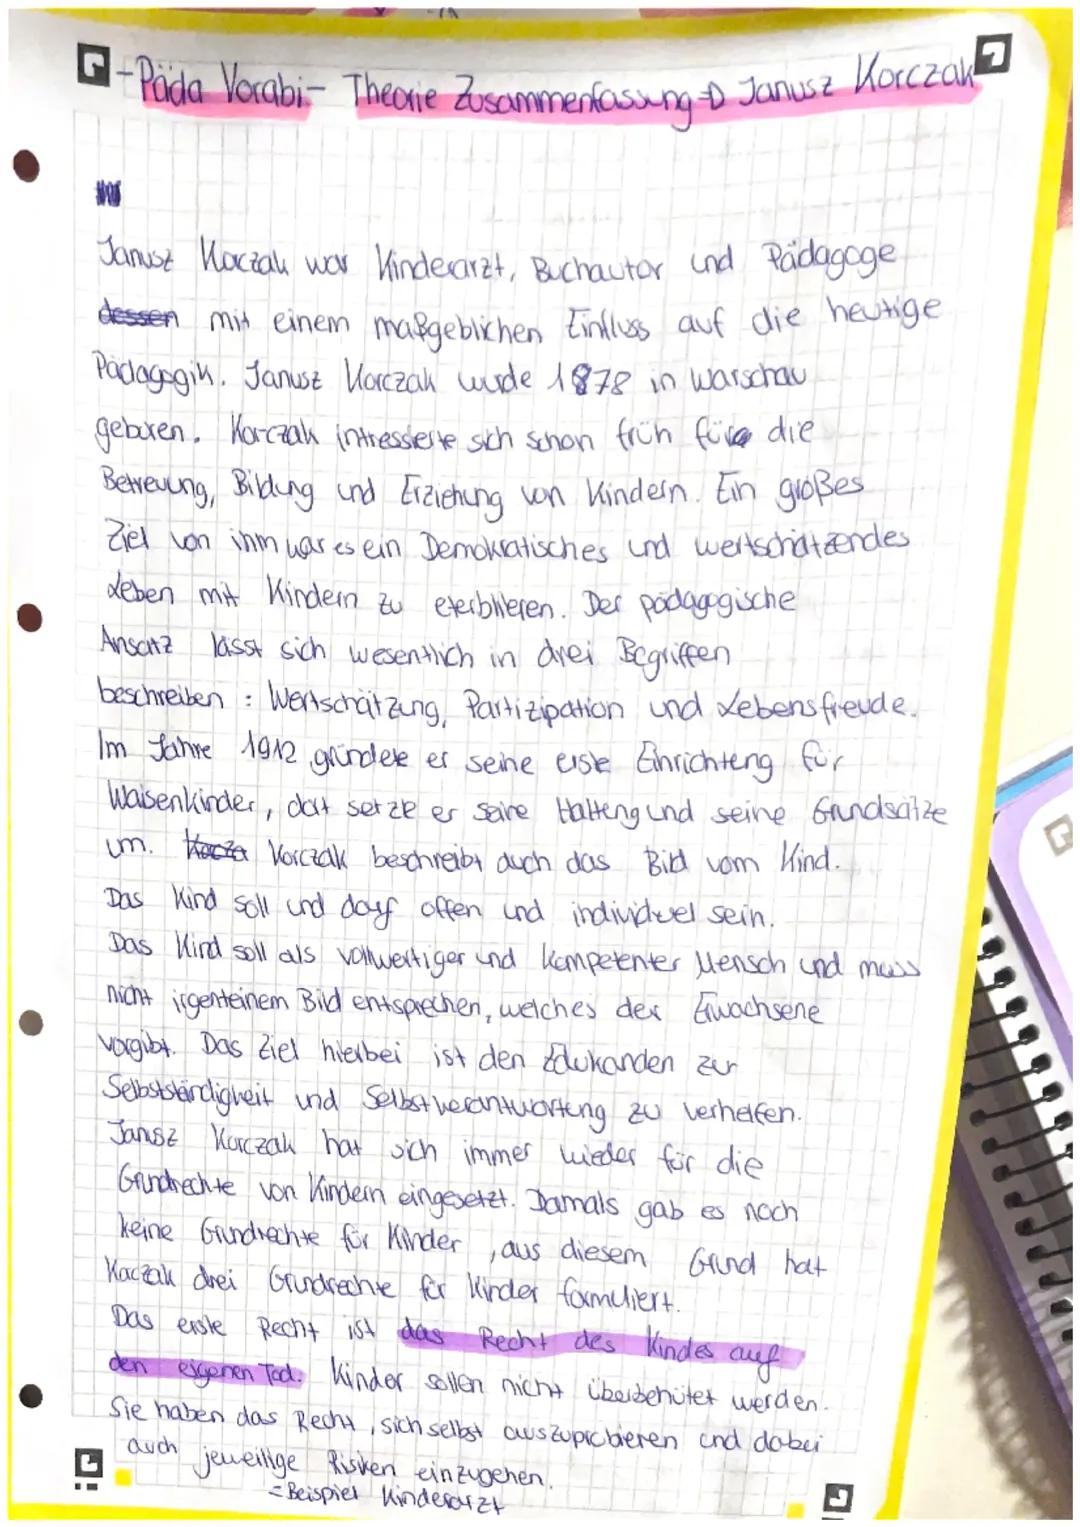 -Päda Vorabi- Theorie Zusammenfassung => Janusz Korczak
Janusz Korczak war Kinderarzt, Buchautor und Pädagoge
dessen mit einem maßgeblichen Einfluss auf die heutige
Pädagogik. Janusz Korczak wurde 1878 in Warschau
geboren. Korczak intressierte sich schon früh für die
Betreuung, Bildung und Erziehung von Kindern. Ein großes
Ziel von ihm war es ein Demokratisches und wertschätzendes
Leben mit Kindern zu eterblieren. Der pädagogische
Ansatz lässt sich wesentlich in drei Begriffen
beschreiben : Wertschätzung, Partizipation und Lebensfreude.
Im Jahre 1912 gründete er seine erste Einrichteng für
Waisenkinder, dort setzte er seine Halteng und seine Grundsätze
um. Korcza Korczak beschreibt auch das Bild vom Kind.
Das Kind soll und darf offen und individuel sein.
Das Kind soll als vollwertiger und kompetenter Mensch und muss
nicht irgenteinem Bild entsprechen, welches der Erwachsene
vorgibt. Das Ziel hierbei ist den Edukanden zur
Selbstständigkeit und Selbstverantworteng zu verhelfen.
Janusz Korczak hat sich immer wieder für die
Grundrechte von Kindern eingesetzt. Damals gab es noch
keine Grundrechte für Kinder , aus diesem Grund hat
Korczak drei Grundrechte für Kinder formuliert.
Das erste Recht ist das Recht des Kindes auf
den eigenen Tod. Kinder sollen nicht überbehütet werden.
Sie haben das Recht , sich selbst auszuprobieren und dabei
auch jeweilige Risken einzugehen.
= Beispiel Kinderarzt